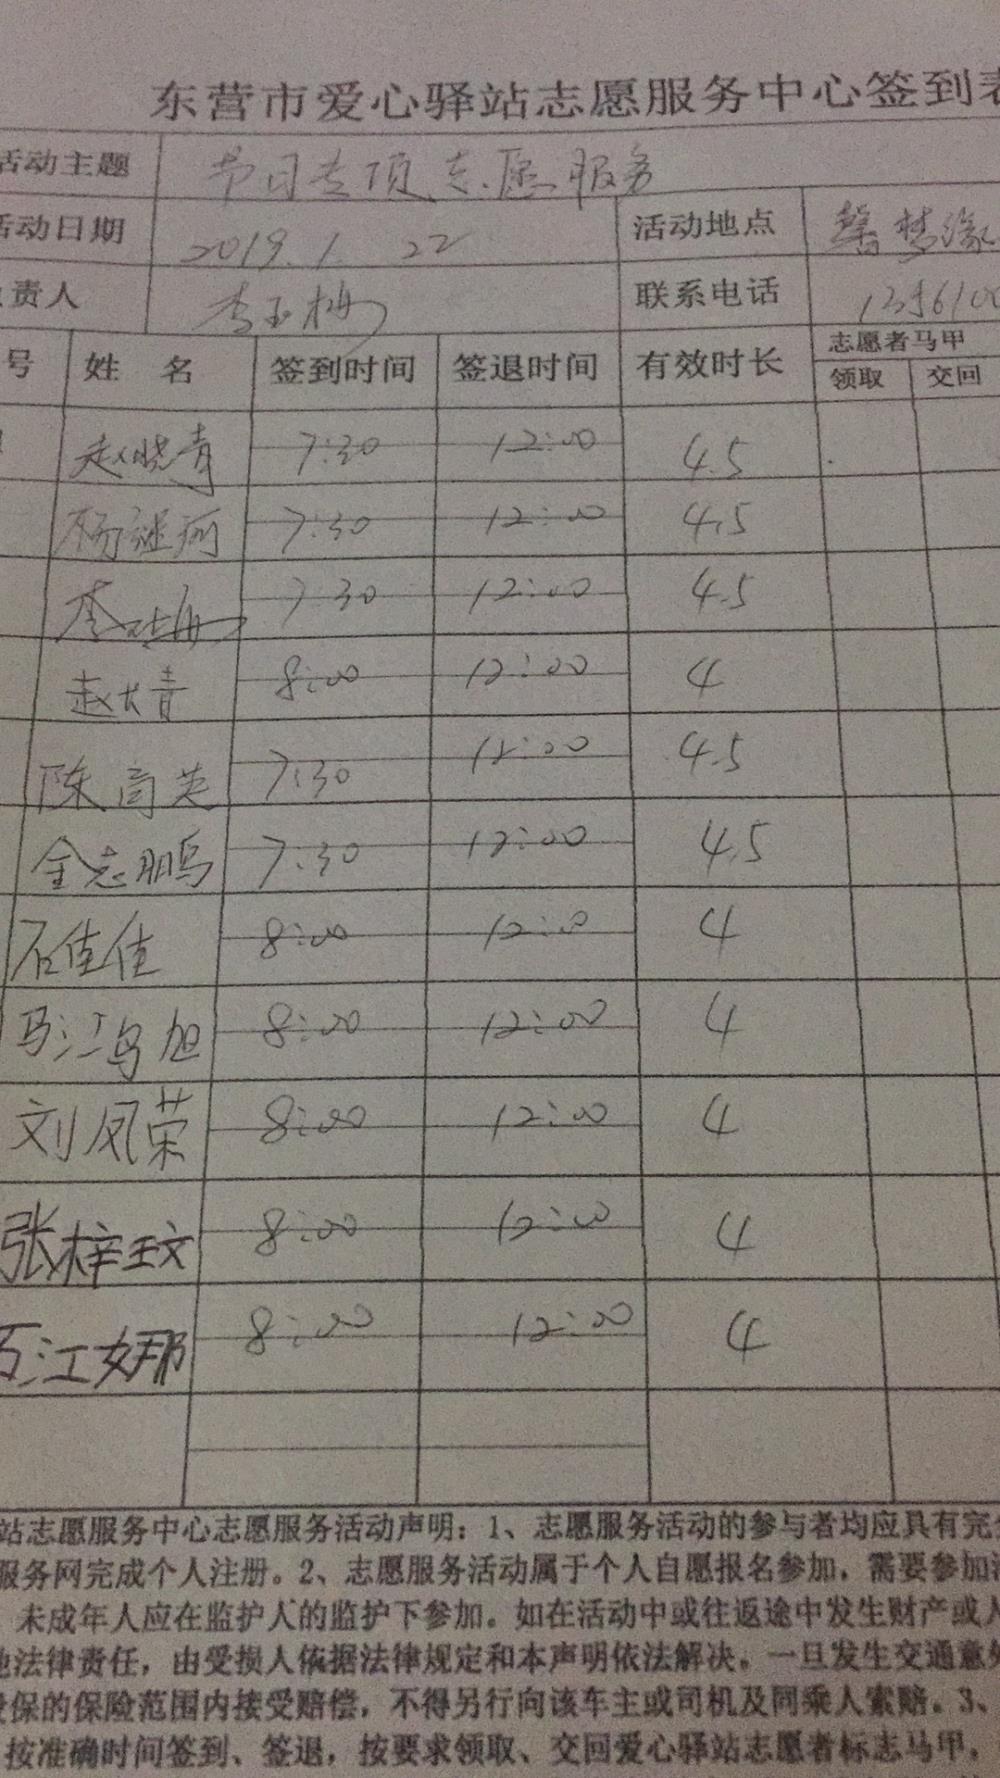 东营市爱心驿站志愿服务中心签到表
活动主题 节日专项志愿服务
活动日期 2019.1.22 活动地点 馨梦缘
负责人 李玉梅 联系电话
号 姓 名 签到时间 签退时间 有效时长 志愿者马甲
领取 交回
赵晓青 7:30 12:00 4.5
杨 7:30 12:00 4.5
李 7:30 12:00 4.5
赵大青 8:00 12:00 4
陈高英 7:30 12:00 4.5
金志鹏 7:30 12:00 4.5
石佳佳 8:00 12:00 4
马江鸟旭 8:00 12:00 4
刘凤荣 8:00 12:00 4
张梓玟 8:00 12:00 4
石江娜 8:00 12:00 4
站志愿服务中心志愿服务活动声明：1、志愿服务活动的参与者均应具有完全
服务网完成个人注册。2、志愿服务活动属于个人自愿报名参加，需要参加
未成年人应在监护人的监护下参加。如在活动中或往返途中发生财产或人
他法律责任，由受损人依据法律规定和本声明依法解决。一旦发生交通意外
投保的保险范围内接受赔偿，不得另行向该车主或司机及同乘人索赔。3、
按准确时间签到、签退，按要求领取、交回爱心驿站志愿者标志马甲，